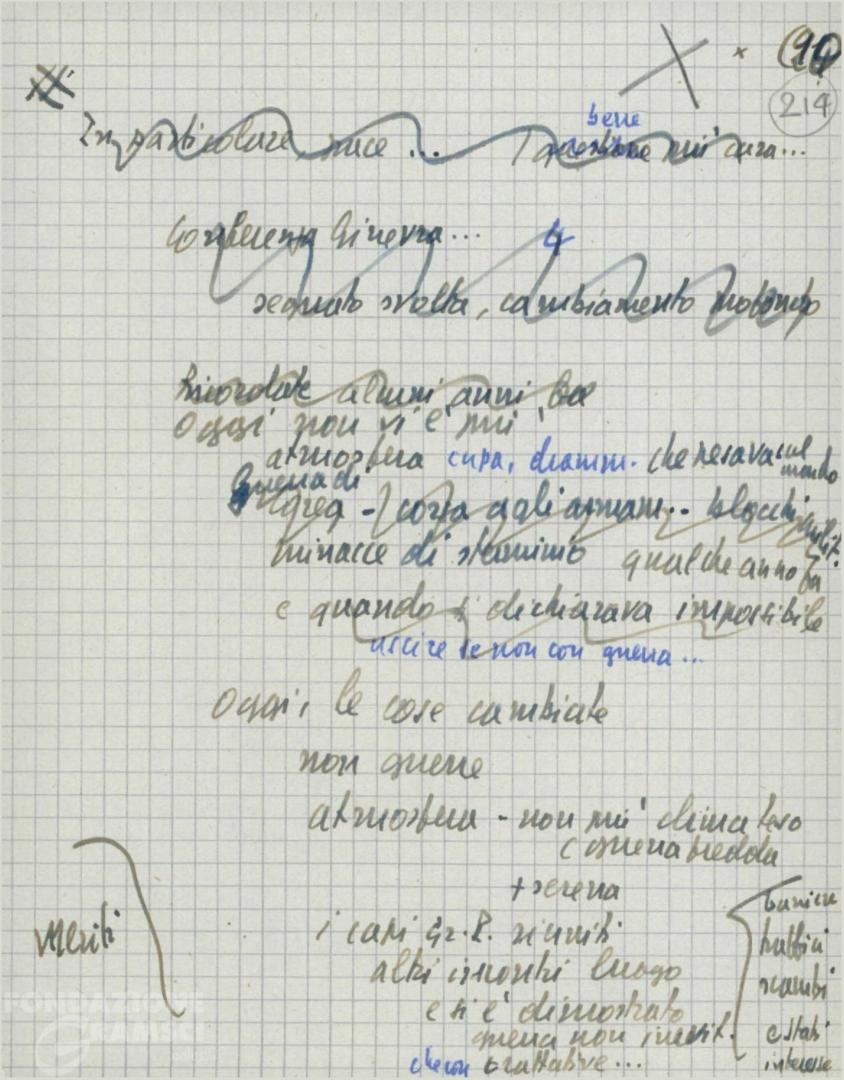 214
bene
In particolare, pace ... / questione più cara...
Conferenza Ginevra... 4
segnato svolta, cambiamento profondo
Ricordate alcuni anni fa
Oggi non vi è più
atmosfera cupa, dramm. che pesava sul mondo
Guerra di
Corea - corsa agli armam.. blocchi milit.
minacce di sterminio qualche anno fa
e quando si dichiarava impossibile
uscire se non con guerra...
Oggi, le cose cambiate
non guerre
atmosfera - non più clima teso
guerra fredda
+ serena
Meriti
i capi Gr. P. riuniti
altri incontri luogo
e si è dimostrato
guerra non inevit.
che con trattative...
barriere
traffici
scambi
interesse
FONDAZIONE
GRAMSCI